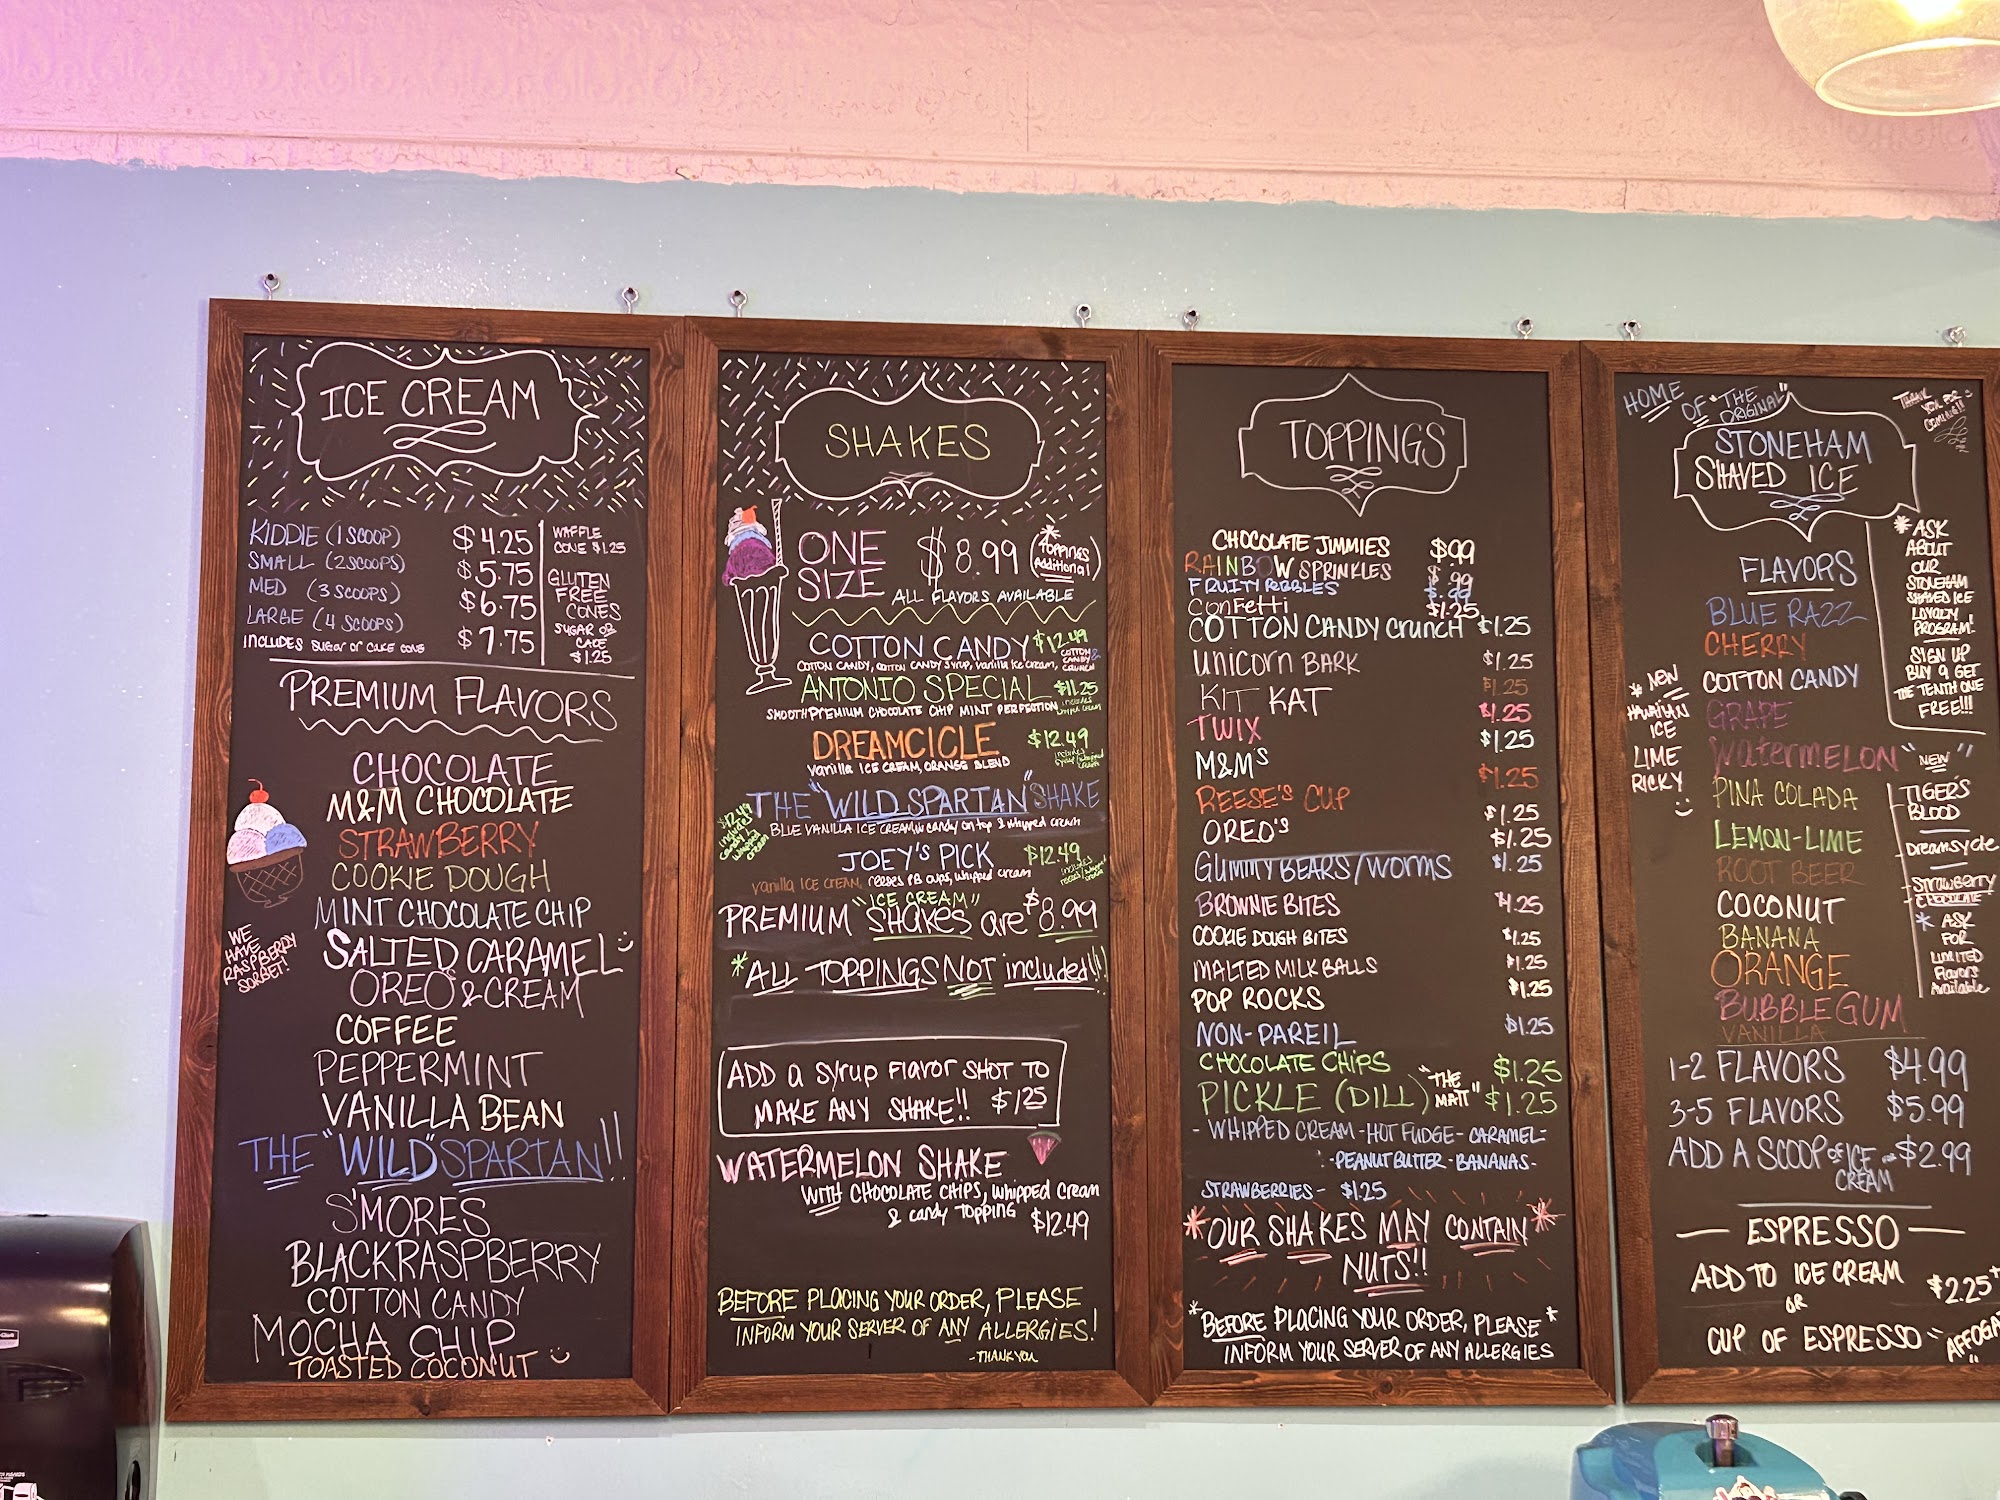 ICE CREAM
KIDDIE (1 SCOOP) $4.25
SMALL (2 SCOOPS) $5.75
MED (3 SCOOPS) $6.75
LARGE (4 SCOOPS) $7.75
INCLUDES SUGAR OR CAKE CONE
WAFFLE
CONE $1.25
GLUTEN
FREE
CONES
SUGAR OR
CAKE
$1.25
PREMIUM FLAVORS
CHOCOLATE
M&M CHOCOLATE
STRAWBERRY
COOKIE DOUGH
MINT CHOCOLATE CHIP
SALTED CARAMEL
OREO'S & CREAM
COFFEE
PEPPERMINT
VANILLA BEAN
THE "WILD" SPARTAN!!
S'MORES
BLACKRASPBERRY
COTTON CANDY
MOCHA CHIP
TOASTED COCONUT
WE
HAVE
RASPBERRY
SORBET!
SHAKES
ONE
SIZE
$8.99
(*TOPPINGS
Additional)
ALL FLAVORS AVAILABLE
COTTON CANDY $12.49
COTTON CANDY, COTTON CANDY SYRUP, Vanilla Ice Cream, COTTON
CANDY
CRUNCH
ANTONIO SPECIAL $11.25
SMOOTH PREMIUM CHOCOLATE CHIP MINT PERFECTION includes
whipped cream
DREAMCICLE $12.49
Vanilla ICE CREAM, ORANGE BLEND includes
syrup/whipped
cream
THE "WILD SPARTAN" SHAKE
BLUE VANILLA ICE CREAM w candy on top & whipped cream
$12.49
includes
candy &
whipped
cream
JOEY'S PICK $12.49
Vanilla ICE CREAM, reeses PB cups, whipped cream
"ICE CREAM"
PREMIUM SHAKES are $8.99
*ALL TOPPINGS NOT included!!!
ADD a syrup Flavor SHOT TO
MAKE ANY SHAKE!! $1.25
WATERMELON SHAKE
WITH CHOCOLATE CHIPS, whipped cream
& candy TOPPING $12.49
BEFORE PLACING YOUR ORDER, PLEASE
INFORM YOUR SERVER OF ANY ALLERGIES!
-THANK YOU
TOPPINGS
CHOCOLATE JIMMIES $.99
RAINBOW SPRINKLES $.99
FRUITY PEBBLES $.99
Confetti $1.25
COTTON CANDY Crunch $1.25
Unicorn BARK $1.25
KIT KAT $1.25
TWIX $1.25
M&M'S $1.25
REESE'S CUP $1.25
OREO'S $1.25
$1.25
GUMMY BEARS/WORMS $1.25
BROWNIE BITES $1.25
COOKIE DOUGH BITES $1.25
MALTED MILK BALLS $1.25
POP ROCKS $1.25
NON-PAREIL $1.25
CHOCOLATE CHIPS $1.25
PICKLE (DILL) "THE
MATT" $1.25
- WHIPPED CREAM - HOT FUDGE - CARAMEL -
- PEANUT BUTTER - BANANAS -
STRAWBERRIES - $1.25
*OUR SHAKES MAY CONTAIN*
NUTS!!
*BEFORE PLACING YOUR ORDER, PLEASE*
INFORM YOUR SERVER OF ANY ALLERGIES
HOME OF "THE
ORIGINAL"
THANK
YOU FOR
COMING!!
STONEHAM
SHAVED ICE
FLAVORS
BLUE RAZZ
CHERRY
COTTON CANDY
GRAPE
Watermelon
PINA COLADA
LEMON-LIME
ROOT BEER
COCONUT
BANANA
ORANGE
BUBBLE GUM
VANILLA
* NEW
HAWAIIAN
ICE
LIME
RICKY
* ASK
ABOUT
OUR
STONEHAM
SHAVED ICE
LOYALTY
PROGRAM!
SIGN UP
BUY 9 GET
THE TENTH ONE
FREE!!!
"NEW"
- TIGER'S
BLOOD
- Dreamsycle
- STRAWBERRY
- CHOCOLATE
* ASK
FOR
LIMITED
Flavors
Available
1-2 FLAVORS $4.99
3-5 FLAVORS $5.99
ADD A SCOOP OF ICE
CREAM $2.99
— ESPRESSO —
ADD TO ICE CREAM $2.25
OR
CUP OF ESPRESSO